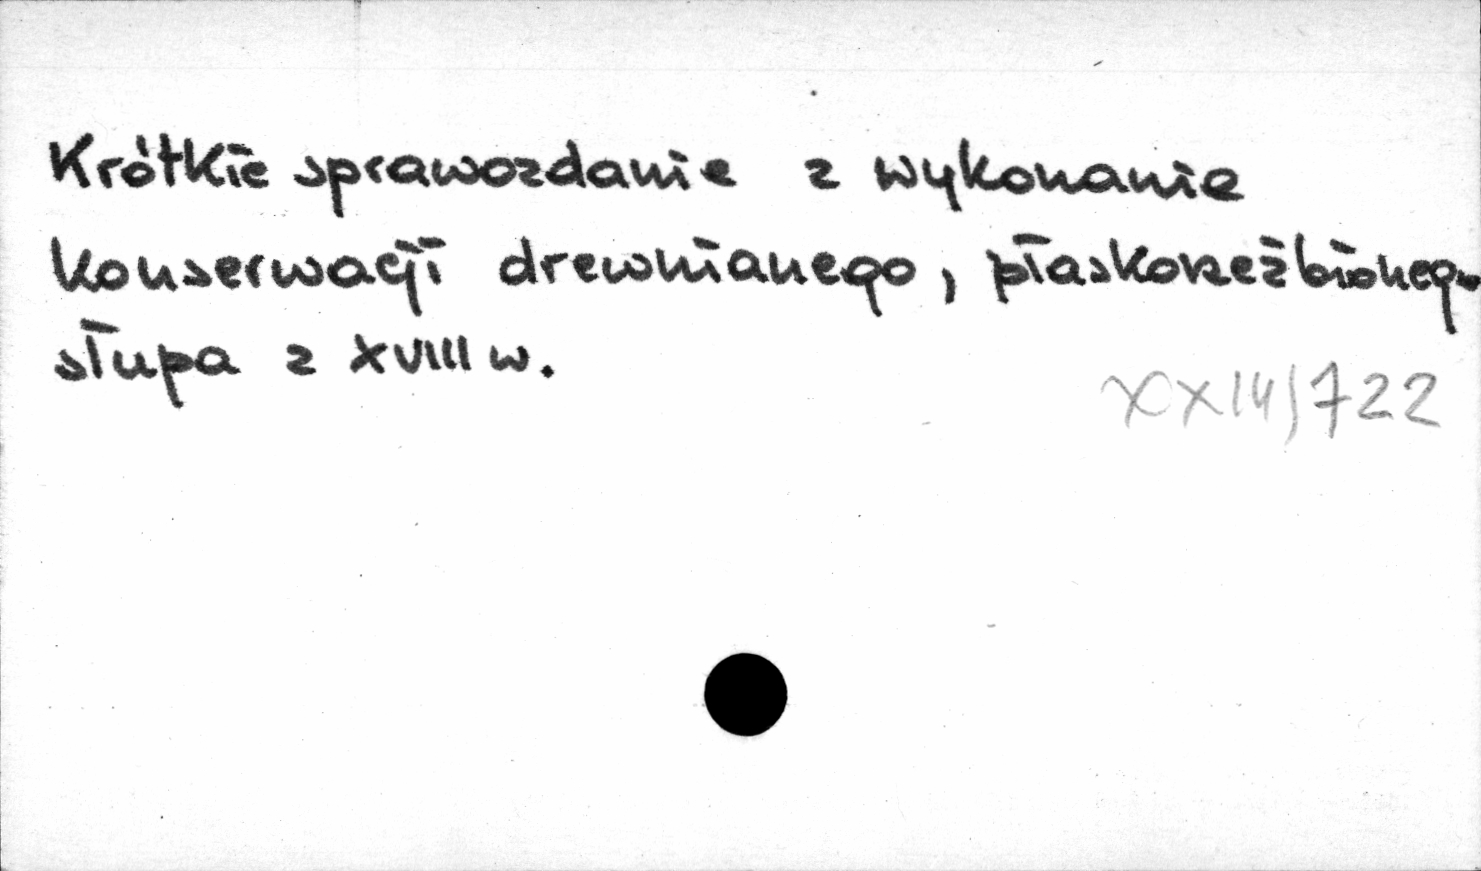 Krótkie sprawozdanie z wykonanie
konserwacji drewnianego, płaskorzeźbionego
słupa z XVIII w.
XXIV/722